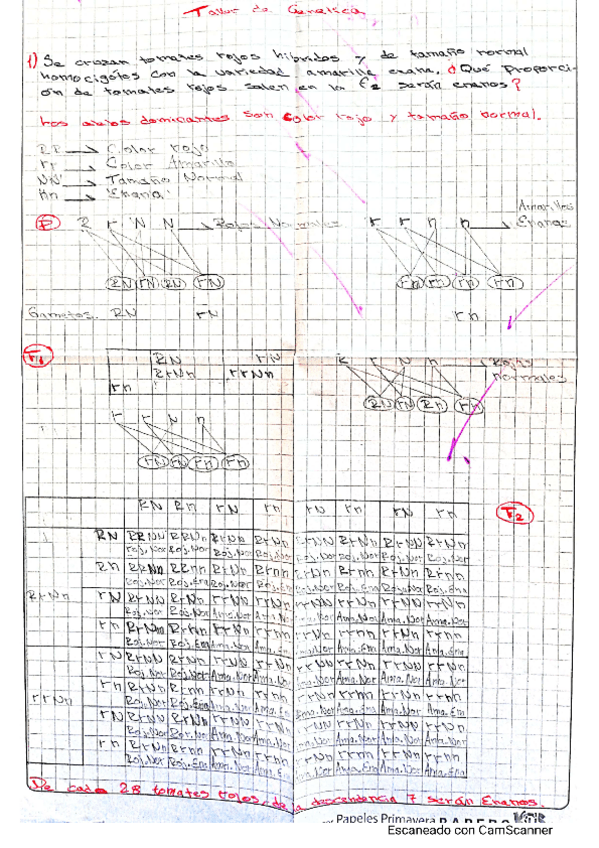 Taller de Genetica
1) Se cruzan tomates rojos híbridos y de tamaño normal
homocigotos con la variedad amarilla enana. ¿Qué Proporci-
ón de tomates rojos salen en la F2 serán enanos?
Los alelos dominantes son color rojo y tamaño normal.
RR → Color rojo
rr → Color Amarillo
NN → Tamaño Normal
nn → Enana
P R r N N → Rojos Normales r r n n → Amarillas Enanas
RN rN RN rN rn rn rn rn
Gametos. RN rN rn
F1 RN rN R r N n → Rojas normales
rn RrNn rrNn
RN rN Rn rn
r r N n
rN rN rn rn
RN Rn rN rn rN rn rN rn F2
RN RRNN RRNn RrNN RrNn RrNN RrNn RrNN RrNn
Roj.Nor Roj.Nor Roj.Nor Roj.Nor Roj.Nor Roj.Nor Roj.Nor Roj.Nor
Rn RRNn RRnn RrNn Rrnn RrNn Rrnn RrNn Rrnn
Roj.Nor Roj.Ena Roj.Nor Roj.Ena Roj.Nor Roj.Ena Roj.Nor Roj.Ena
RrNn rN RrNN RrNn rrNN rrNn rrNN rrNn rrNN rrNn
Roj.Nor Roj.Nor Ama.Nor Ama.Nor Ama.Nor Ama.Nor Ama.Nor Ama.Nor
rn RrNn Rrnn rrNn rrnn rrNn rrnn rrNn rrnn
Roj.Nor Roj.Ena Ama.Nor Ama.Ena Ama.Nor Ama.Ena Ama.Nor Ama.Ena
rN RrNN RrNn rrNN rrNn rrNN rrNn rrNN rrNn
Roj.Nor Roj.Nor Ama.Nor Ama.Nor Ama.Nor Ama.Nor Ama.Nor Ama.Nor
rrNn rn RrNn Rrnn rrNn rrnn rrNn rrnn rrNn rrnn
Roj.Nor Roj.Ena Ama.Nor Ama.Ena Ama.Nor Ama.Ena Ama.Nor Ama.Ena
rN RrNN RrNn rrNN rrNn rrNN rrNn rrNN rrNn
Roj.Nor Roj.Nor Ama.Nor Ama.Nor Ama.Nor Ama.Nor Ama.Nor Ama.Nor
rn RrNn Rrnn rrNn rrnn rrNn rrnn rrNn rrnn
Roj.Nor Roj.Ena Ama.Nor Ama.Ena Ama.Nor Ama.Ena Ama.Nor Ama.Ena
De cada 28 tomates rojos de la descendencia 7 serán Enanos.
Papeles Primavera
Escaneado con CamScanner